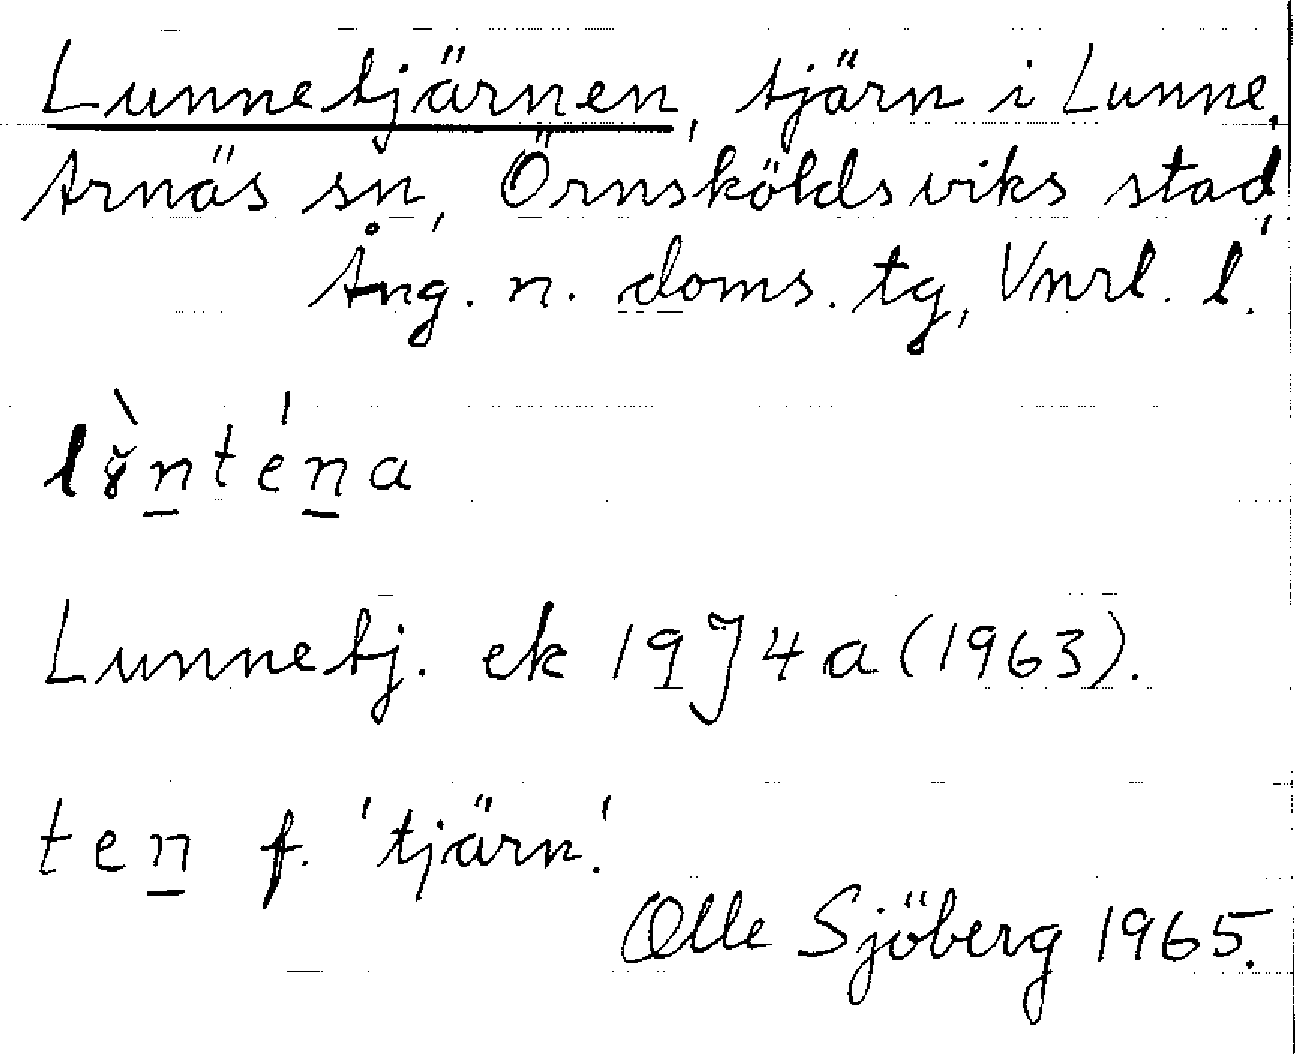 Lunnetjärnen, tjärn i Lunne,
Arnäs sn, Örnsköldsviks stad,
Ång. n. doms. tg, Vnrl. l.
Lunnetj. ek 19J4a (1963).
ten f. 'tjärn'.
Olle Sjöberg 1965.